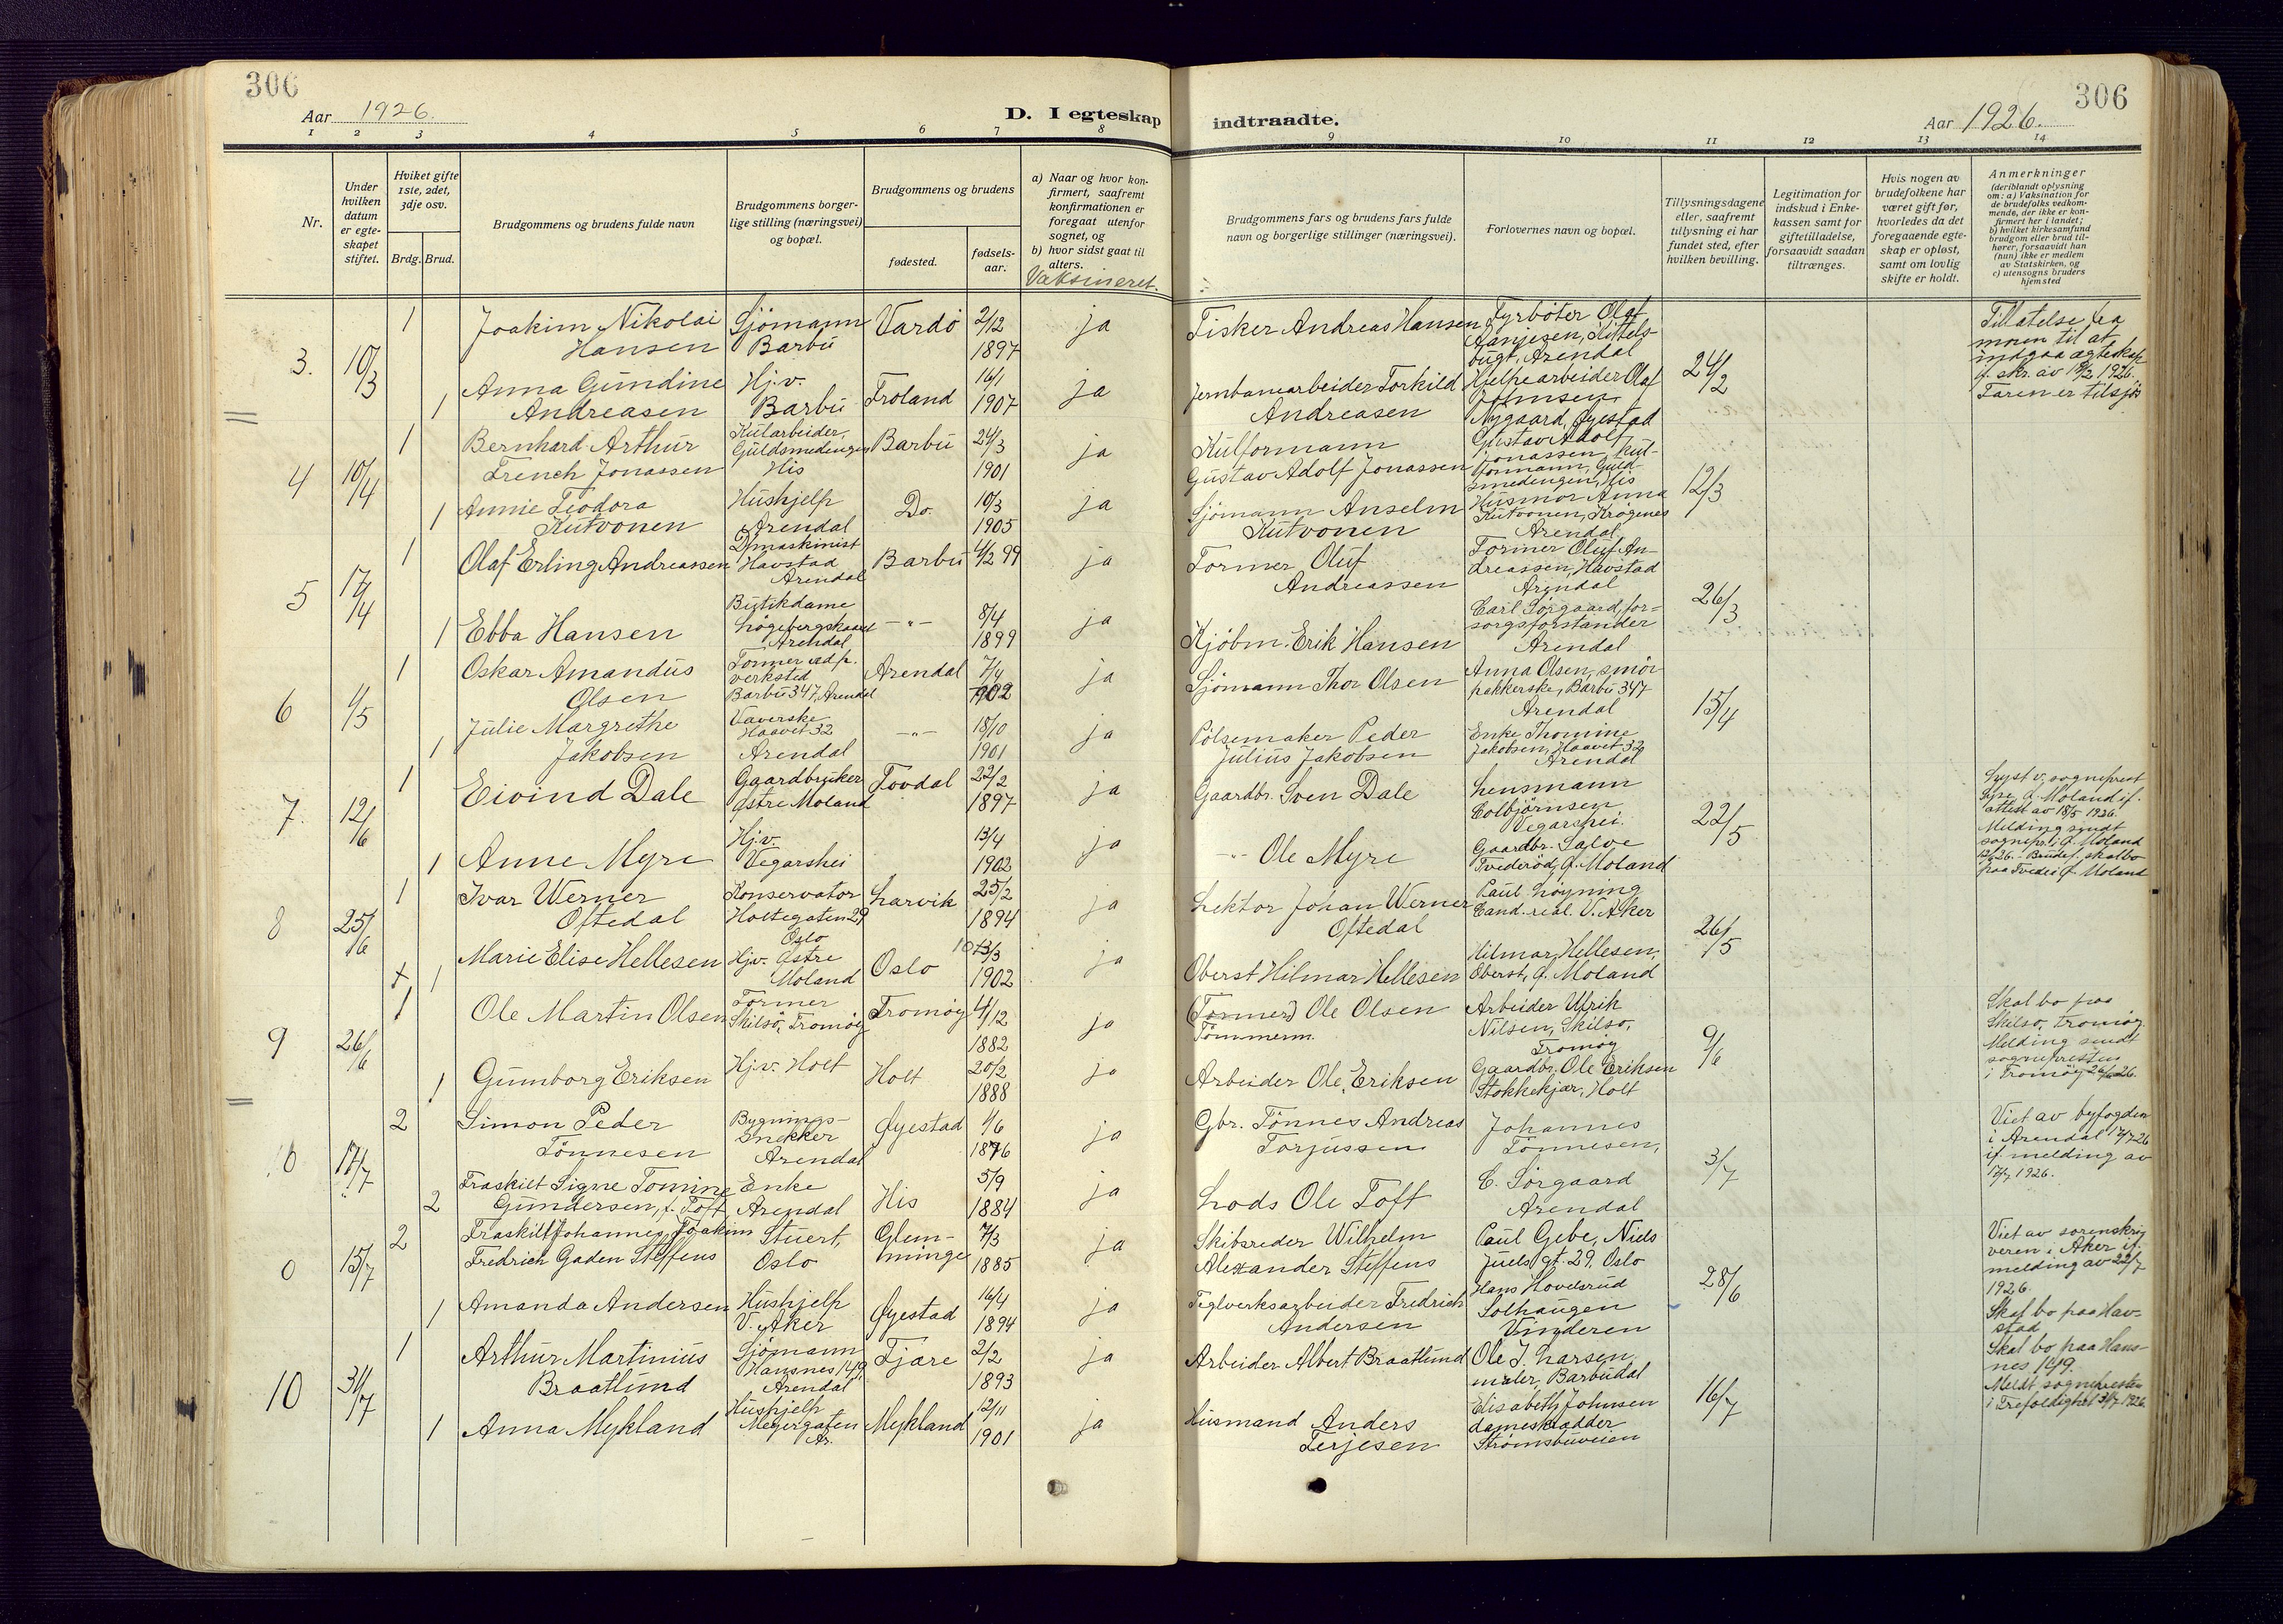 306
Aar 1926.
D. I egteskap indtraadte.
Aar 1926.
306
1 2 3 4 5 6 7 8 9 10 11 12 13 14
Nr.
Under
hvilken
datum
er egte-
skapet
stiftet.
Hviket gifte
1ste, 2det,
3dje osv.
Brdg. Brud.
Brudgommens og brudens fulde navn
Brudgommens borger-
lige stilling (næringsvei)
og bopæl.
Brudgommens og brudens
fødested.
fødsels-
aar.
a) Naar og hvor kon-
firmert, saafremt
konfirmationen er
foregaat utenfor
sognet, og
b) hvor sidst gaat til
alters.
Vaksineret.
Brudgommens fars og brudens fars fulde
navn og borgerlige stillinger (næringsvei).
Forlovernes navn og bopæl.
Tillysningsdagene
eller, saafremt
tillysning ei har
fundet sted, efter
hvilken bevilling.
Legitimation for
indskud i Enke-
kassen samt for
giftetilladelse,
forsaavidt saadan
tiltrænges.
Hvis nogen av
brudefolkene har
været gift før,
hvorledes da det
foregaaende egte-
skap er opløst,
samt om lovlig
skifte er holdt.
Anmerkninger
(deriblandt oplysning
om: a) Vaksination for
de brudefolks vedkom-
mende, der ikke er kon-
firmert her i landet;
b) hvilket kirkesamfund
brudgom eller brud til-
hører, forsaavidt han
(hun) ikke er medlem
av Statskirken, og
c) utensogns bruders
hjemsted
3.
10/3
1
Joakim Nikolai
Hansen
Sjömann
Barbu
Vardö
2/12
1897
ja
Fisker Andreas Hansen
Fyrböter Olaf
Aanjesen, Kittels-
bugt, Arendal
24/2
Tillatelse fra
moren til at
indgaa ægteskap
if. skr. av 18/2 1926.
Faren er tilsjös
1
Anna Gundine
Andreasen
Hj.v.
Barbu
Froland
16/1
1907
ja
Jernbanearbeider Torkild
Andreasen
Hjelpearbeider Olaf
Johnsen
Nygaard, Øyestad
4
10/4
1
Bernhard Arthur
French Jonassen
Kularbeider,
Guldsmedengen
His
Barbu
24/3
1901
ja
Kulformann
Gustav Adolf Jonassen
Gustav Adolf
Jonassen, Kul-
formann, Guld-
smedengen, His
12/3
1
Annie Teodora
Kutvonen
Hushjelp
Arendal
Do.
10/3
1905
ja
Sjömann Anselm
Kutvonen
Husmor Anna
Kutvonen, Krögenes
Arendal
5
17/4
1
Olaf Erling Andreassen
D/maskinist
Havstad
Arendal
Barbu
4/2 99
ja
Former Oluf
Andreassen
Former Oluf An-
dreassen, Havstad
Arendal
26/3.
1
Ebba Hansen
Butikdame
Högebergskaaret
Arendal
-"-
8/4
1899
ja
Kjöbm. Erik Hansen
Carl Sörgaard, for-
sorgsforstander
Arendal
6
1/5
1
Oskar Amandus
Olsen
Former
verksted
Barbu 347, Arendal
Arendal
7/4
1902
ja
Sjömann Thor Olsen
Anna Olsen, smör
pakkerske, Barbu 347
Arendal
15/4
1
Julie Margrethe
Jakobsen
Væverske
Haavet 32
Arendal
-"-
18/10
1901
ja
Pölsemaker Peder
Julius Jakobsen
Enke Thomine
Jakobsen, Haavet 32
Arendal
7.
12/6
1
Eivind Dale
Gaardbruker
Østre Moland
Tovdal
22/2
1897
ja
Gaardbr. Sven Dale
Lensmann
Colbjörnsen
Vegarshei.
22/5
Lyst v. sogneprest
Ø. Moland if.
attest av 18/5 1926.
Melding sendt
sognepr. i Ø. Moland
12/6 26. - Brudef. skal bo
paa Tvede i Ø. Moland
1
Anne Myre
Hj.v.
Vegarshei
13/4
1902
ja
-"- Ole Myre
Gaardbr. Salve
Tvederöd, Ø. Moland
8
25/6
1
Ivar Werner
Oftedal
Konservator
Holtegaten 29
Oslo
Larvik
25/2
1894
ja
Lektor Johan Werner
Oftedal
Paul Löyning
Cand. real. V. Aker
26/5
+ 1
Marie Elise Hellesen
Hjv. Østre
Moland
Oslo
13/3
1902
ja
Oberst Hilmar Hellesen
Hilmar Hellesen,
Oberst, Ø. Moland
9
26/6
1
Ole Martin Olsen
Former
Skilsö, Tromöy
Tromöy
4/12
1882
ja
(Former) Ole Olsen
Tömmerm.
Arbeider Ulrik
Nilsen, Skilsö,
Tromöy
9/6
Skal bo paa
Skilsö, Tromöy
Melding sendt
sognepresten
i Tromöy 26/6 26.
1
Gunborg Eriksen
Hj.v. Holt
Holt
20/2
1888
ja
Arbeider Ole Eriksen
Gaardbr. Ole Eriksen
Stokkekjær, Holt
0
17/7
2
Simon Peder
Tönnesen
Bygnings-
snekker
Arendal
Øyestad
1/6
1876
ja
Gbr. Tönnes Andreas
Torjussen
Johannes
Tönnesen,
3/7
Viet av byfogden
i Arendal 17/7 26
if. melding av
17/7 1926.
2
Fraskilt Signe Tomine
Gundersen, f. Toft
Enke
Arendal
His
5/9
1884
ja
Lods Ole Toft
C. Sörgaard
Arendal
0
15/7
2
Fraskilt Johannes Joakim
Fredrich Gaden Steffens
Stuert,
Oslo
Glem-
minge
7/3
1885
ja
Skibsreder Wilhelm
Alexander Steffens
Paul Gebe, Niels
Juels gt. 29, Oslo
28/6
Viet av sorenskri
veren i Aker if.
melding av 22/7
1926.
1
Amanda Andersen
Hushjelp
V. Aker
Øyestad
16/4
1894
ja
Teglverksarbeider Fredrich
Andersen
Hans Hovdsrud
Solhaugen
Vinderen
Skal bo paa Hav-
stad
10
31/7
1
Arthur Martinius
Braatlund
Sjömann
Hansnes 1419,
Arendal
Fjære
2/2
1893
ja
Arbeider Albert Braatlund
Ole J. Larsen
maler, Barbudal
16/7
Skal bo paa Hans-
nes 1419.
Meldt sognepresten
i Trefoldighet 31/7 1926
1
Anna Mykland
Hushjelp
Meyergaten
Ar.
Mykland
12/11
1901
ja
Husmand Anders
Terjesen
Elisabeth Johnsen
dameskrædder
Strömsbuveien